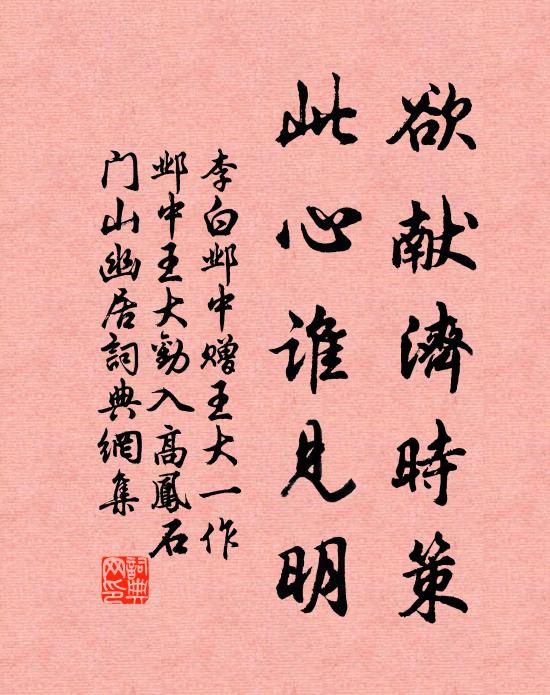 欲献濟時策
此心谁見明
李白邺中赠王大一作
邺中王大勸入高鳳石
门山幽居詞典網集
詞典
网印